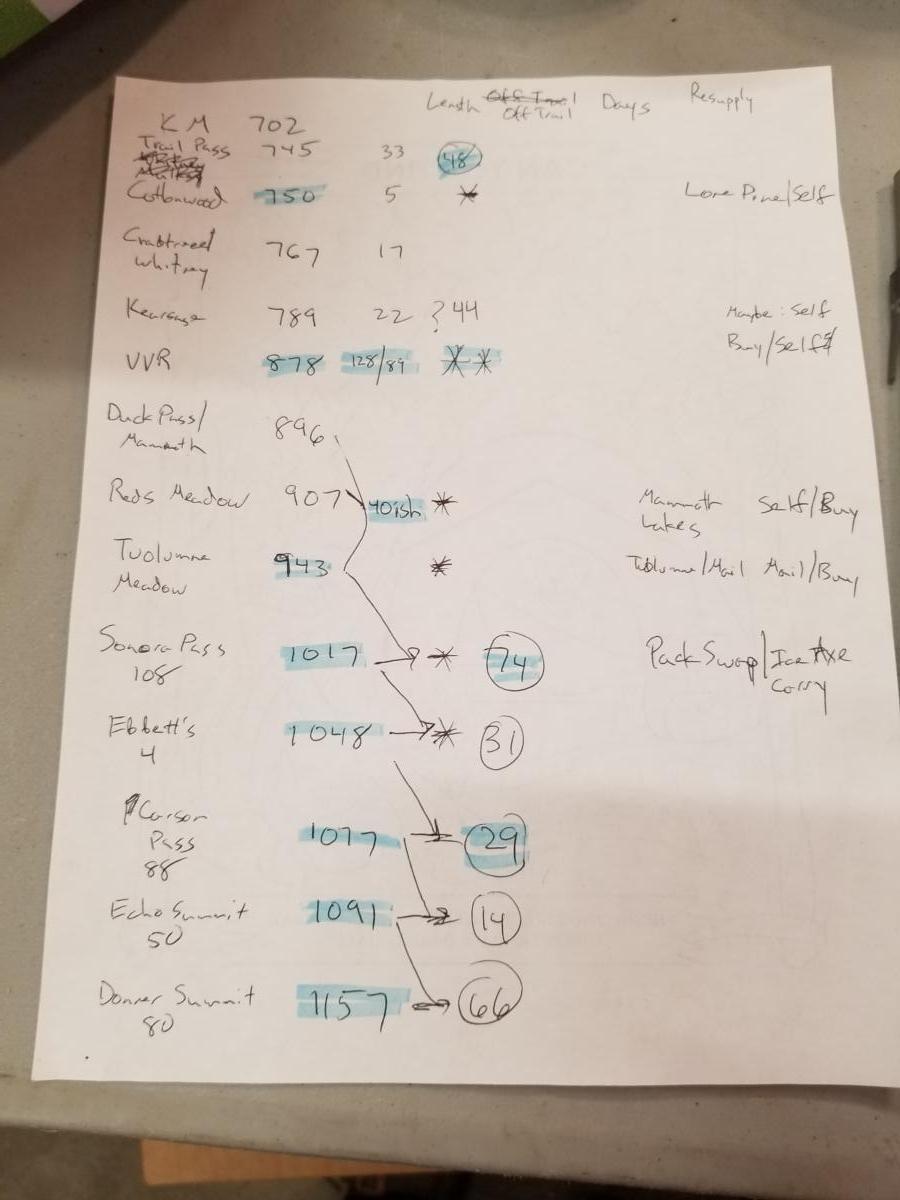 Length Off Trail Days Resupply
Off Trail
KM 702
Trail Pass 745 33 48
Cottonwood 750 5 * Lone Pine/Self
Crabtree/ 767 17
Whitney
Kearsage 789 22 ? 44 Maybe: Self
VVR 878 128/89 ** Buy/Self
Duck Pass/ 896
Mammoth
Reds Meadow 907 40ish * Mammoth Self/Buy
Lakes
Tuolumne 943 * Tuolumne/Mail Mail/Buy
Meadow
Sonora Pass 1017 → * 74 Pack Swap/Ice Axe
108 Carry
Ebbett's 1048 → * 31
4
Carson 1077 → 29
Pass
88
Echo Summit 1091 → 14
50
Donner Summit 1157 → 66
80